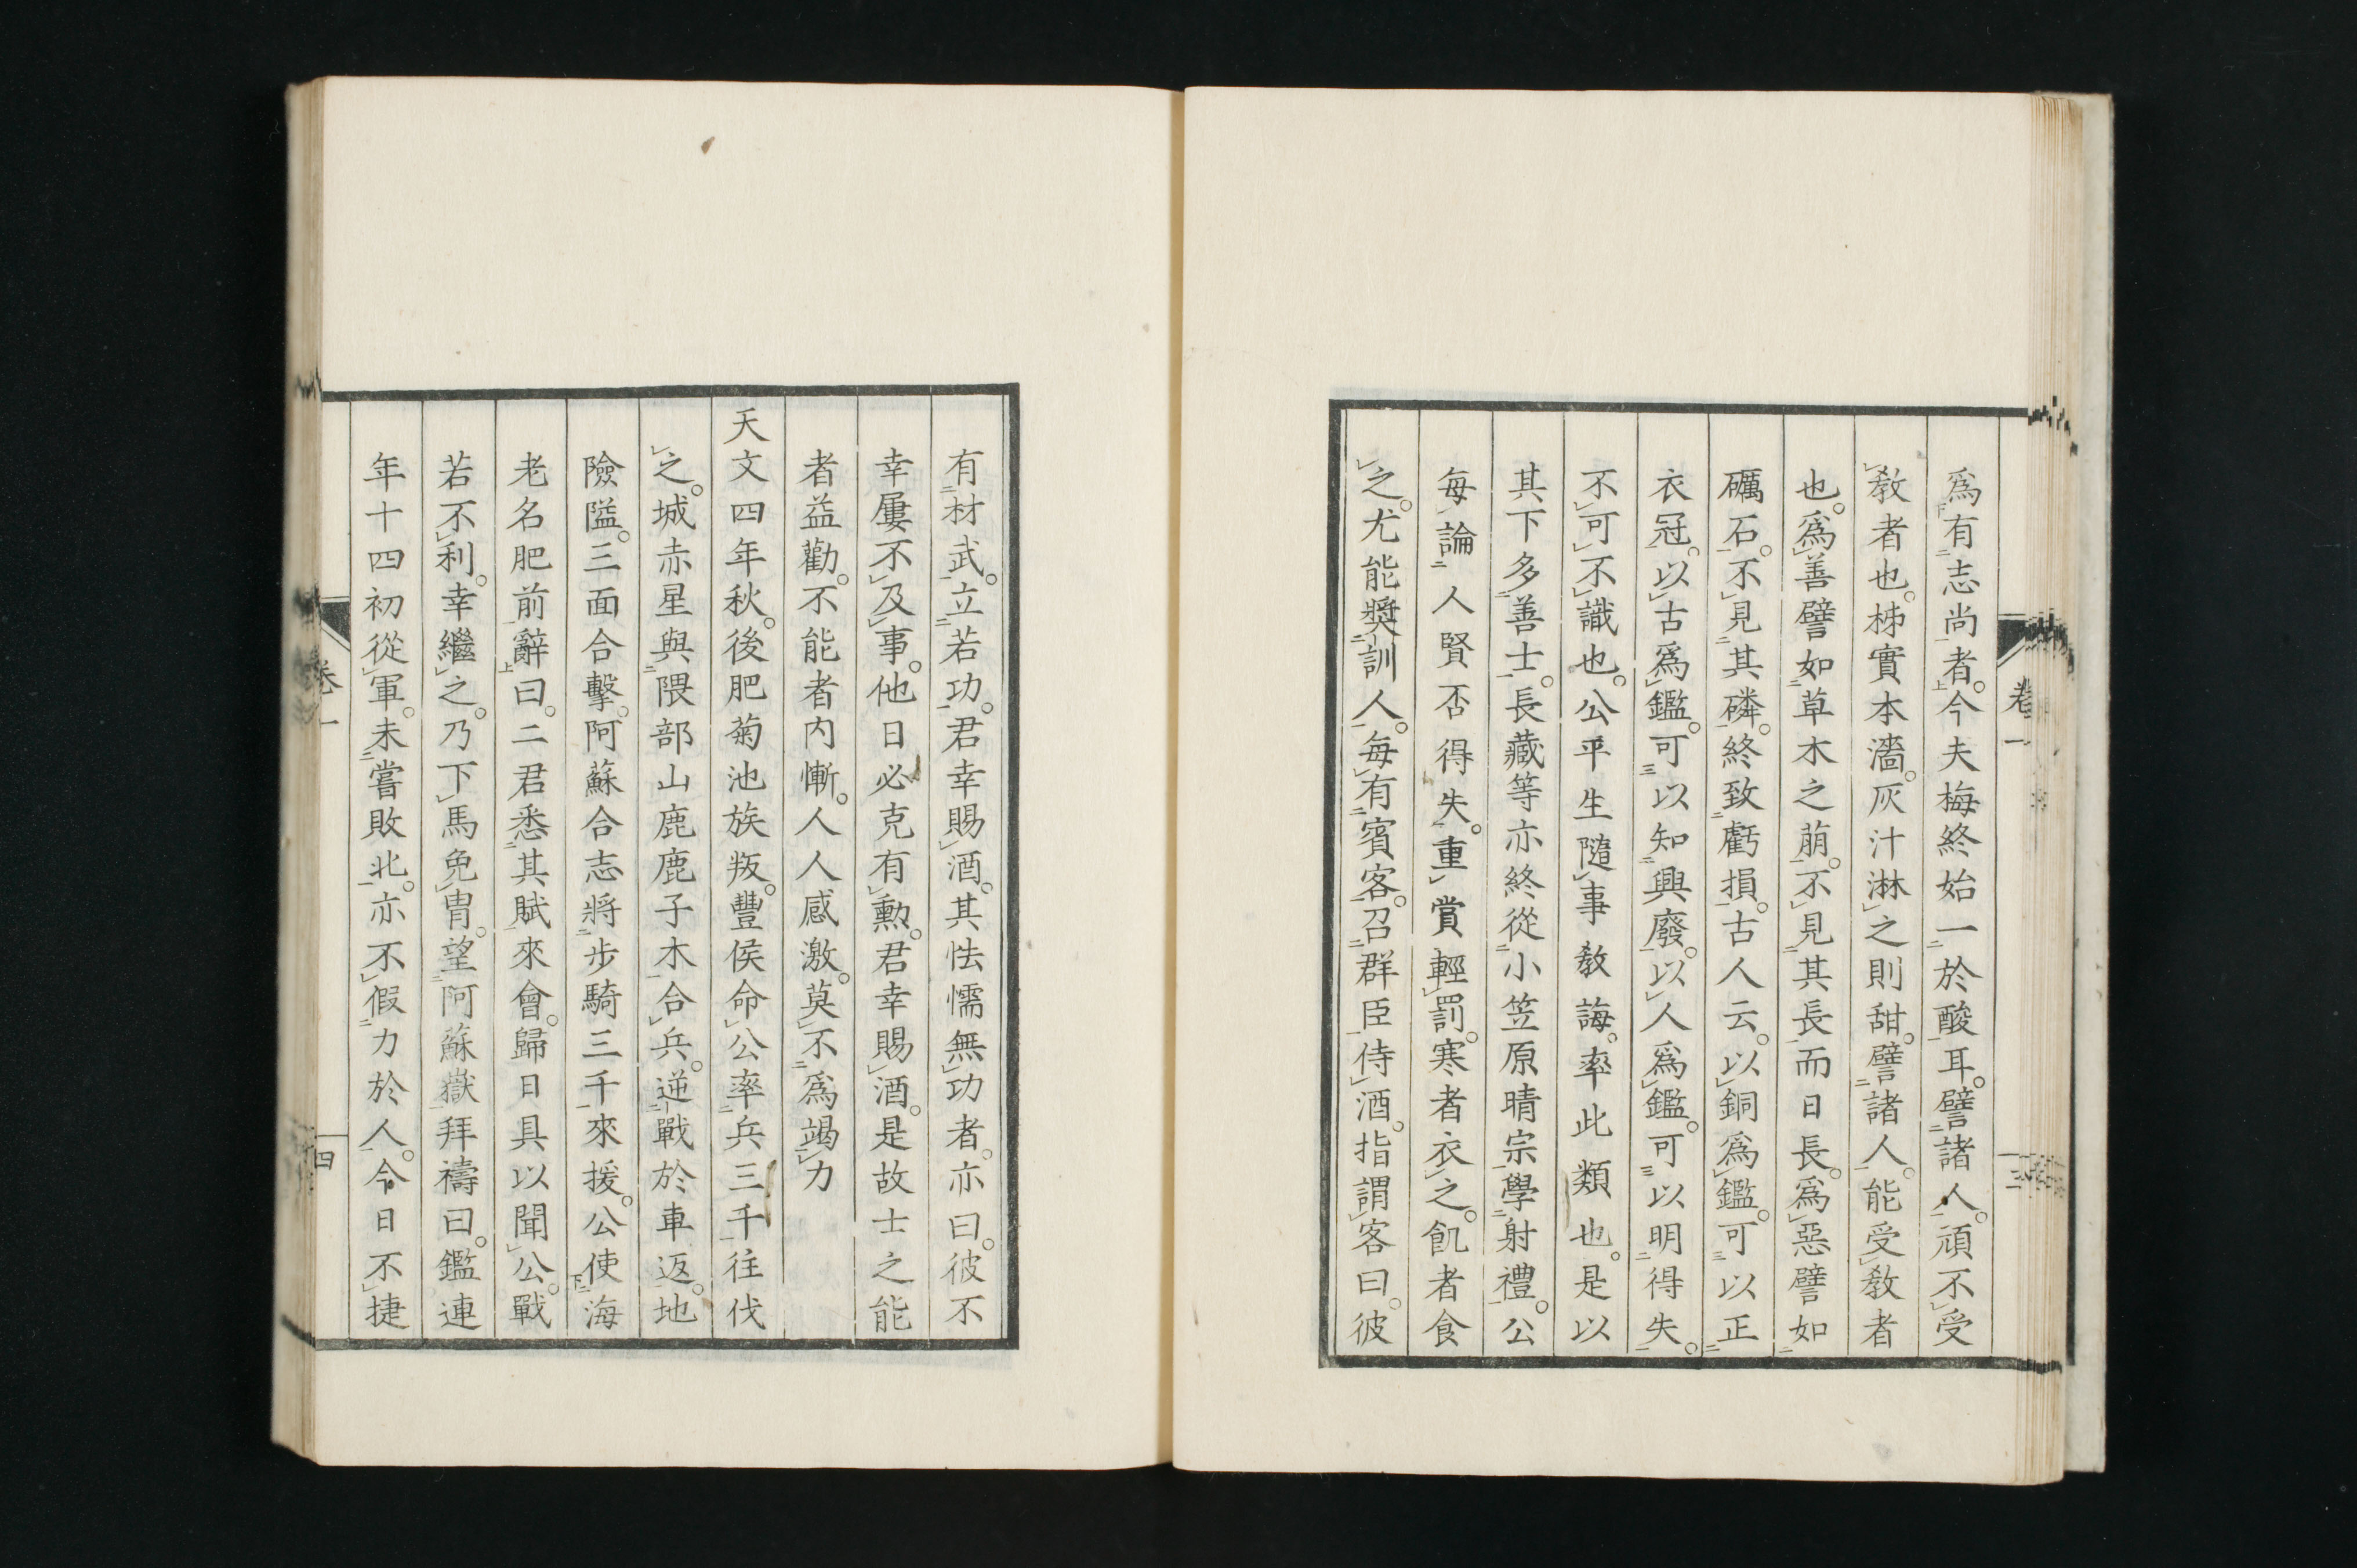 卷一
三
爲有志尚者。今夫梅終始一於酸耳。譬諸人。頑不受
教者也。柹實本濇。灰汁淋之則甜。譬諸人。能受教者
也。爲善譬如草木之萠。不見其長而日長。爲惡譬如
礪石。不見其磷。終致虧損。古人云。以銅爲鑑。可以正
衣冠。以古爲鑑。可以知興廢。以人爲鑑。可以明得失。
不可不識也。公平生隨事教誨。率此類也。是以
其下多善士。長藏等亦終從小笠原晴宗學射禮。公
每論人賢否得失。重賞輕罰。寒者衣之。飢者食
之。尤能奬訓人。每有賓客。召群臣侍酒。指謂客曰。彼
有材武。立若功。君幸賜酒。其怯懦無功者。亦曰。彼不
幸屢不及事。他日必克有勳。君幸賜酒。是故士之能
者益勸。不能者内慚。人人感激。莫不爲竭力
天文四年秋。後肥菊池族叛。豐侯命公率兵三千往伐
之。城赤星與隈部山鹿鹿子木合兵。逆戰於車返。地
險隘。三面合擊。阿蘇合志將步騎三千來援。公使海
老名肥前辭曰。二君悉其賦來會。歸日具以聞公。戰
若不利。幸繼之。乃下馬免冑。望阿蘇嶽拜禱曰。鑑連
年十四初從軍。未嘗敗北。亦不假力於人。今日不捷
卷一
四